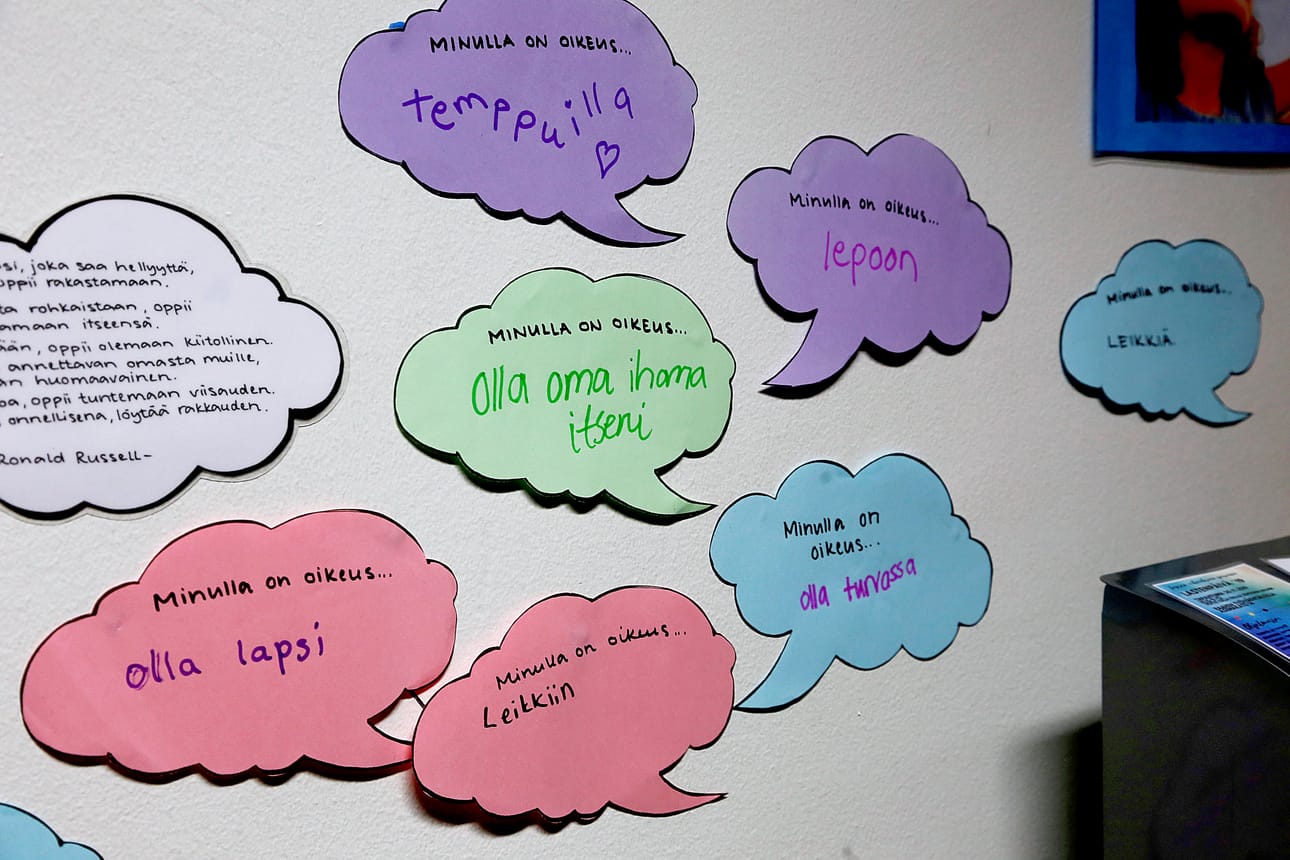 MINULLA ON OIKEUS...
temppuilla
Minulla on oikeus...
lepoon
Minulla on oikeus...
LEIKKIÄ
joka saa hellyyttä,
oppii rakastamaan.
rohkaistaan, oppii
itseensä.
oppii olemaan kiitollinen.
annettavan omasta muille,
huomaavainen.
oppii tuntemaan viisauden.
onnellisena, löytää rakkauden.
Ronald Russell-
MINULLA ON OIKEUS...
olla oma ihana
itseni
Minulla on
oikeus...
olla turvassa
Minulla on oikeus...
olla lapsi
Minulla on oikeus...
Leikkiin